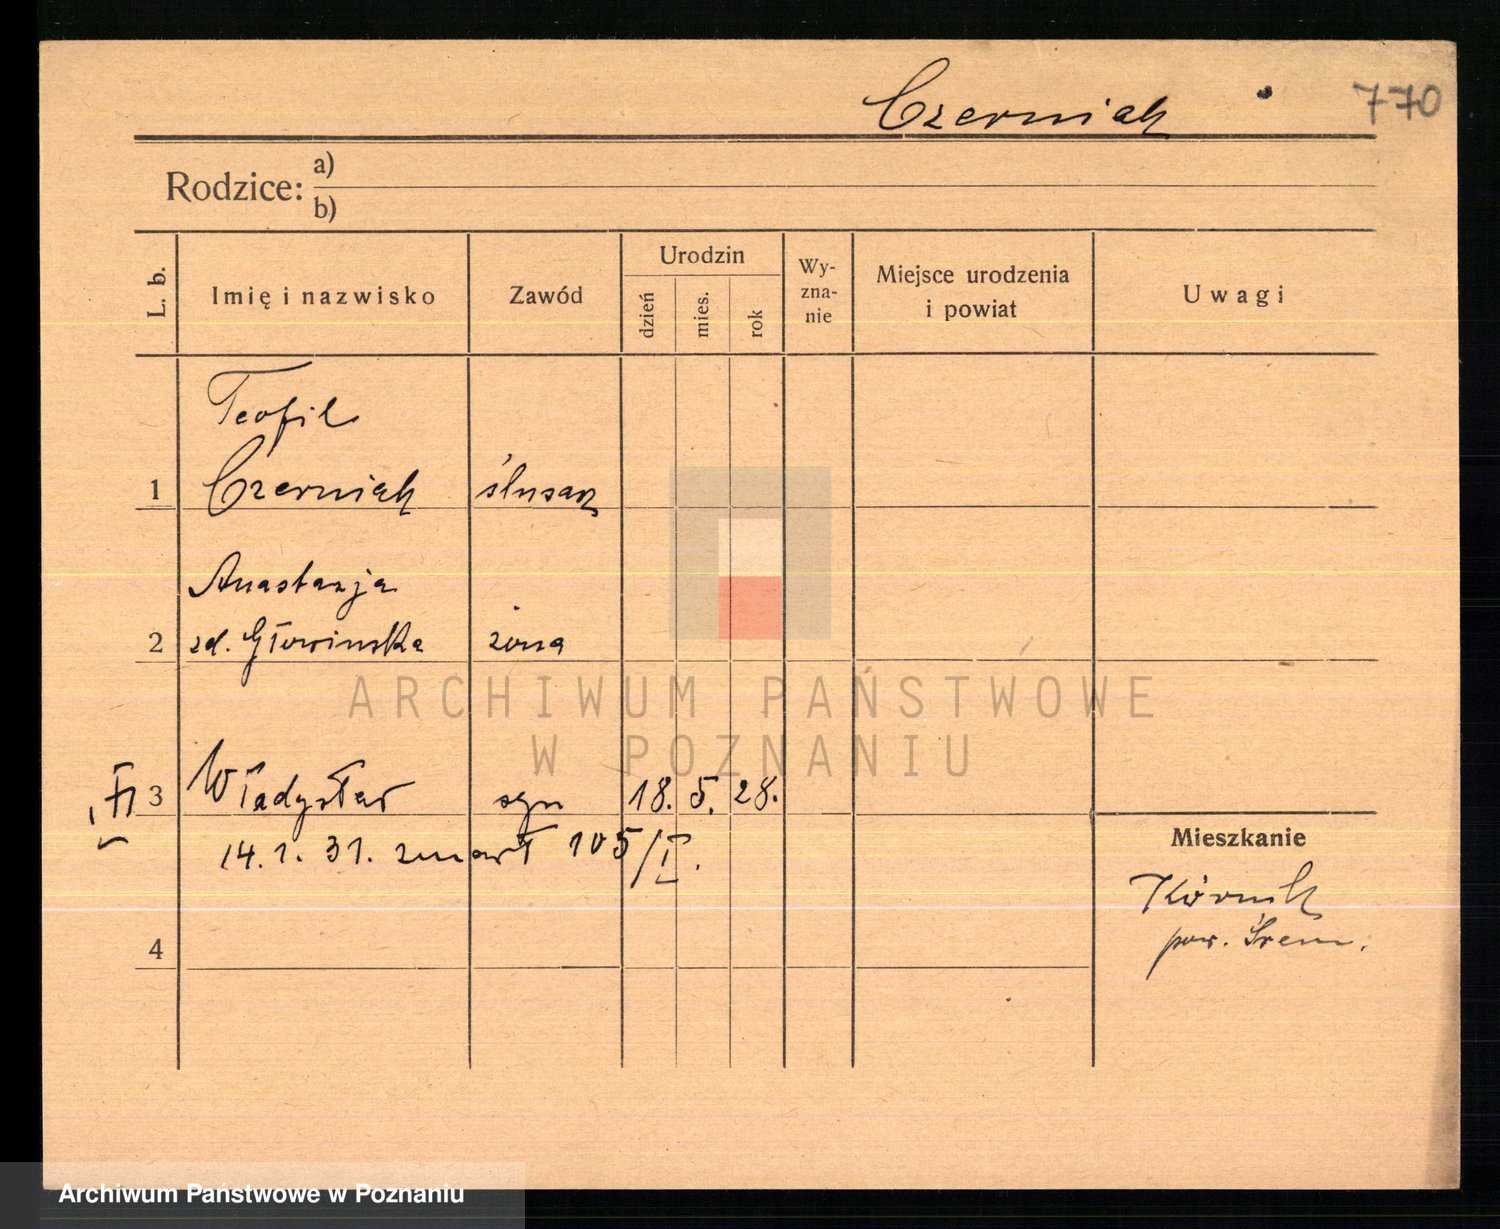 Czerniak
770
Rodzice: a)
b)
L. b.
Imię i nazwisko
Zawód
Urodzin
dzień
mies.
rok
Wy-
zna-
nie
Miejsce urodzenia
i powiat
Uwagi
Teofil
1 Czerniak ślusarz
Anastazja
2 zd. Głowinska żona
ARCHIWUM PAŃSTWOWE
W POZNANIU
3 Władysław syn 18. 5. 28.
14. 1. 31. zmarł 105/I.
Mieszkanie
Kórnik
pow. Śrem.
4
Archiwum Państwowe w Poznaniu